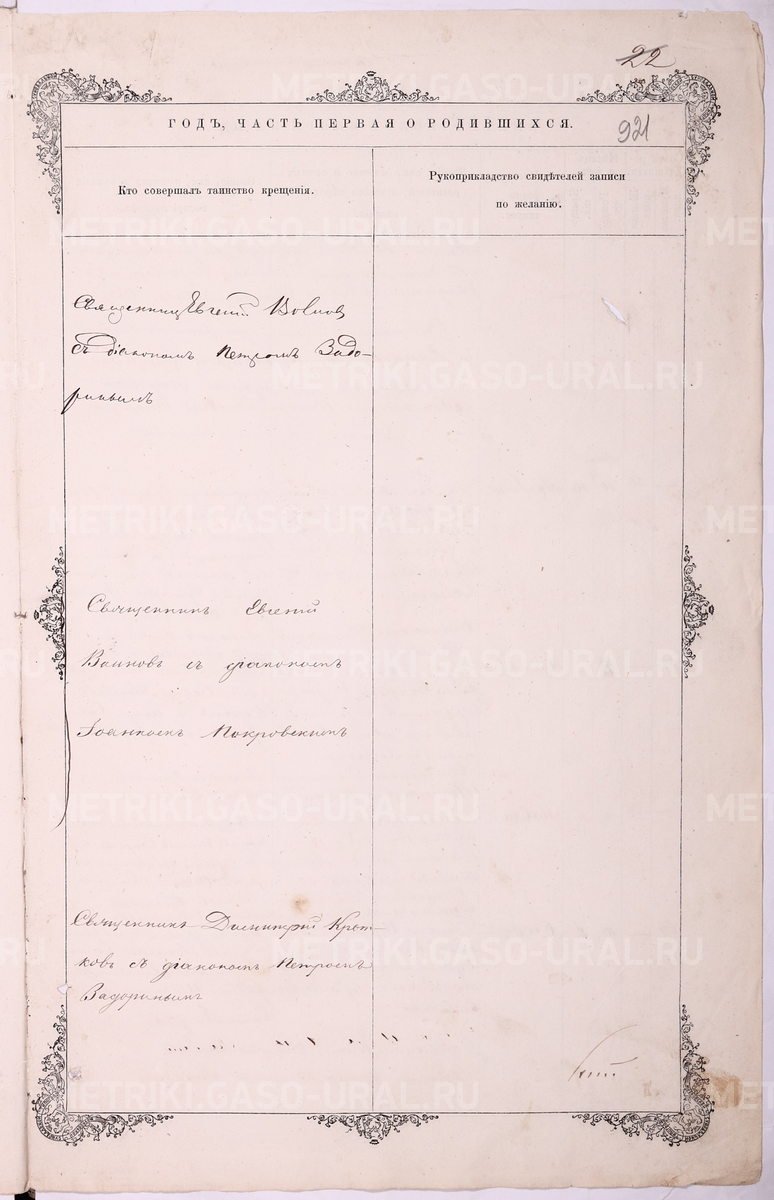 22
921
ГОДЪ, ЧАСТЬ ПЕРВАЯ О РОДИВШИХСЯ.
Кто совершалъ таинство крещенія.
Рукоприкладство свидѣтелей записи
по желанію.
Священникъ Евгеній
съ діакономъ Петромъ Задо-
ринымъ
Священникъ Евгеній
Воиновъ съ діакономъ
Іоанномъ Покровскимъ
Священникъ Димитрій Крот-
ковъ съ діакономъ Петромъ
Задоринымъ
METRIKI.GASO-URAL.RU